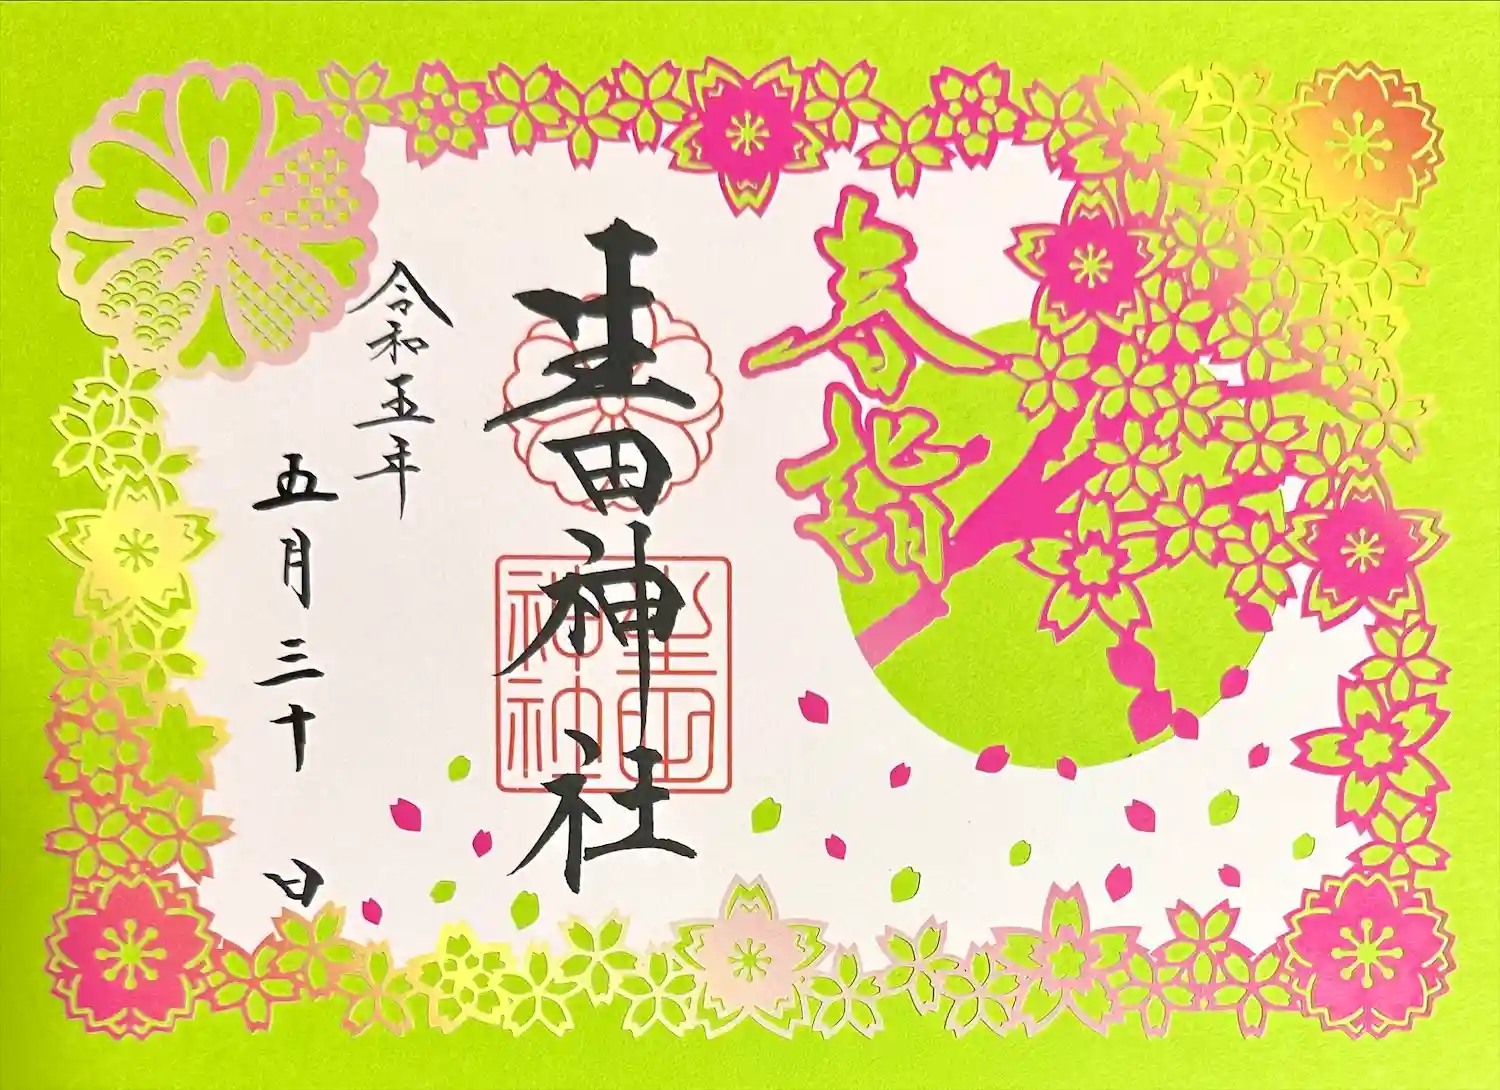 春詣
生田神社
令和五年
五月三十日
生田
神社